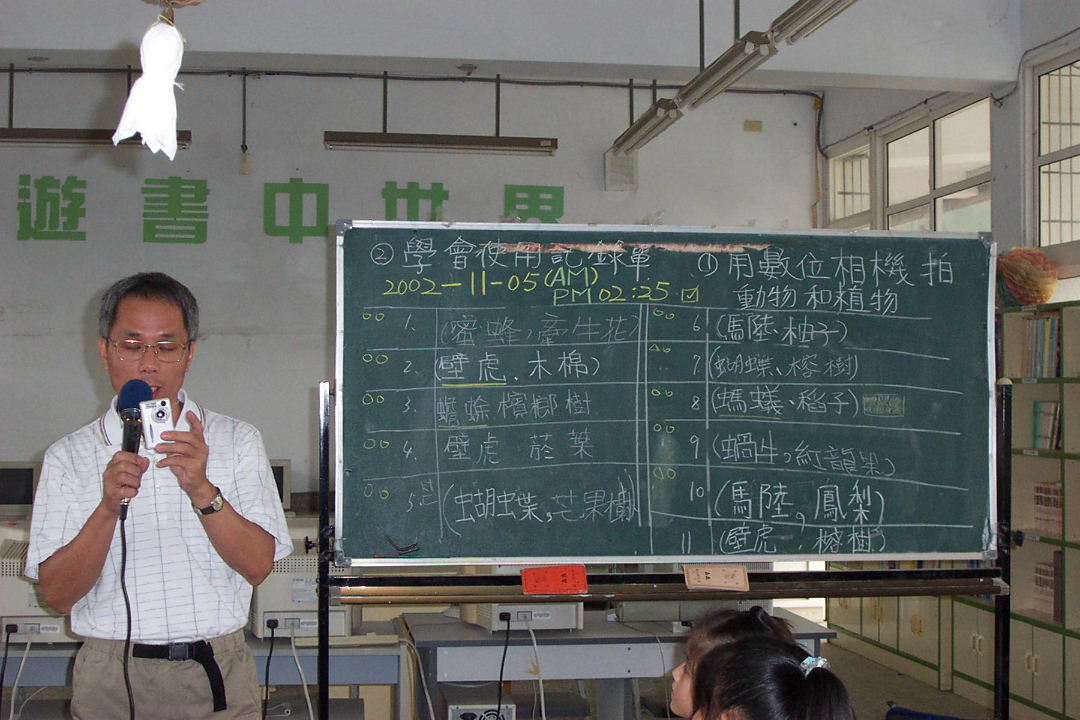 遊書中世界
② 學會使用記錄單
2002-11-05 (AM)
PM 02:25 ☑
① 用數位相機拍
動物和植物
1. (蜜蜂, 牽牛花)
2. (壁虎. 木棉)
3. 蟾蜍 檳榔樹
4. 壁虎 菸葉
5. (蝴蝶, 芒果樹)
6 (馬陸. 柚子)
7. (蝴蝶、榕樹)
8 (螞蟻、稻子)
9 (蝸牛, 紅龍果)
10 (馬陸, 鳳梨)
11 (壁虎. 榕樹)